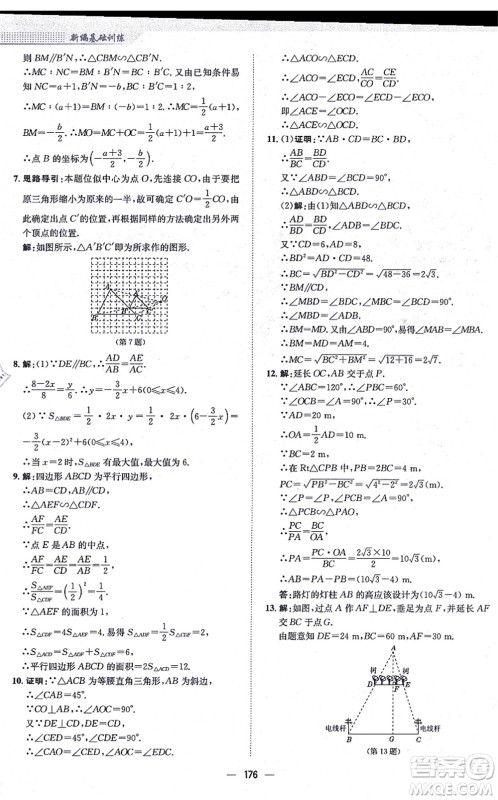 新编基础训练
则 BM∥B′N,∴△CBM∽△CB′N.
∴MC∶NC=BM∶B′N=BC∶B′C.又由已
知,得 NC=a+1,B′N=-b,BC∶B′C=1∶2,
∴MC∶(a+1)=BM∶(-b)=1∶2.∴MC=1/2(a+1),
BM=-b/2.∴MO=MC+CO=1/2(a+1)+1=(a+3)/2.
∴点 B 的坐标为(-(a+3)/2,-b/2).
7. 思路导引:本题位似中心为点 O,先连接 CO,因要把
原三角形缩小为原来的一半,故可确定 C′O=1/2CO,
由此确定点 C′的位置,再用同样的方法确定出另两
个顶点的位置.
解:如图所示,△A′B′C′即为所求作的图形.
(第 7 题)
8. 解:(1)∵DE∥BC,∴AD/AB=AE/AC.
∴(8-2x)/8=y/6.∴y=-3/2x+6(0≤x≤4).
(2)∵S△BDE=1/2·2x·y=1/2·2x(6-3/2x)=
-3/2(x-2)²+6(0≤x≤4),
∴当 x=2 时,S△BDE 有最大值,最大值为 6.
9. 解:∵四边形 ABCD 为平行四边形,
∴AB=CD,AB∥CD.
∴△AEF∽△CDF.
∴AF/FC=AE/CD.
∵点 E 是 AB 的中点,
∴AF/FC=AE/CD=1/2.
∴S△AEF/S△CDF=(1/2)²=1/4.
∴S△CDF=4S△AEF=4.
∴S△ACD=3/2S△CDF=6.
∴平行四边形 ABCD 的面积=2S△ACD=12.
10. 证明:∵△ABC 为等腰直角三角形,
∴∠CAB=45°.
∵CO⊥AB,∴∠AOC=90°.
∵DE⊥BC,∠B=45°,
∴∠CED=90°,∠CDE=45°.
∴∠CED=∠AOC,∠CAO=∠CDE.
176
∴△ACO∽△DCE.
∴∠ACO=∠ECD.∴AC/CO=CE/CD.
∴∠ACO-∠ECO=∠ECD-∠ECO,
即∠ACE=∠OCD.
11. (1)证明:∵AB·CD=BC·BD,
∴AB/BC=BD/CD.
∵∠ABD=∠BCD=90°,
∴△ABD∽△BCD.
(2)解:由(1)知△ABD∽△BCD,
∴AD/BD=BD/CD,∠ADB=∠BDC.
又∵CD=6,AD=8,
∴BD²=AD·CD=48.
∴BC=√(BD²-CD²)=√(48-36)=2√3.
∵BM∥CD,
∴∠MBD=∠BDC,∠MBC=90°.
∴∠MBD=∠MDB,∠MAB=∠MBA.
∴BM=MD=AM=4.
∴MC=√(BC²+BM²)=√(12+16)=2√7.
12. 解:延长 OC,AB 交于点 P.
∵∠ABC=120°,
∴∠PBC=60°.
∵∠OCB=∠A=90°,
∴∠P=30°.
∵AD=20 m,
∴OA=1/2AD=10 m.
∵BC=2 m,
∴在 Rt△CPB 中,PB=2BC=4 m,
PC=√(PB²-BC²)=√(4²-2²)=2√3(m).
∵∠P=∠P,∠PCB=∠A=90°,
∴△PCB∽△PAO.
∴PC/PA=BC/OA.
∴PA=PC·OA/BC=2√3×10/2=10√3(m).
∴AB=PA-PB=(10√3-4)m.
答:路灯的灯柱 AB 的高应该设计为(10√3-4)m.
13. 解:如图,过点 A 作 AF⊥DE,垂足为点 F,并延长 AF
交 BC 于点 G.
由题意知 DE=24 m,BC=60 m,AF=30 m.
树 树
电线杆 电线杆
(第 13 题)